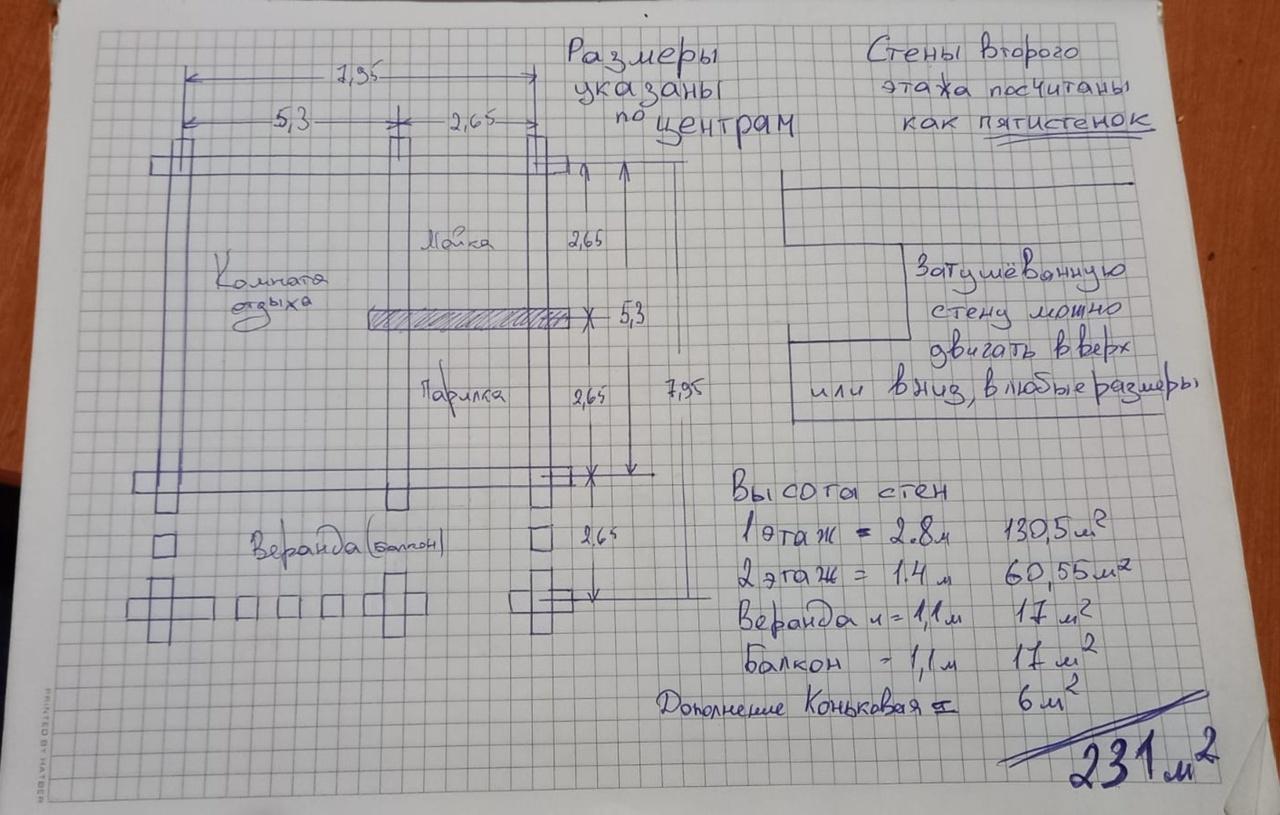 Размеры
указаны
по центрам
Стены второго
этажа посчитаны
как пятистенок
7,95
5,3
2,65
Мойка
2,65
Комната
отдыха
5,3
Затушёванную
стену можно
двигать вверх
или вниз, в любые размеры
Парилка
2,65
7,95
Высота стен
1 этаж = 2.8м 130,5м²
2 этаж = 1.4 м 60,55м²
Веранда = 1,1м 17 м²
Балкон - 1,1м 17 м²
Дополнение Коньковая = 6 м²
231м²
Веранда (балкон)
2,65
PRINTED BY HATBER